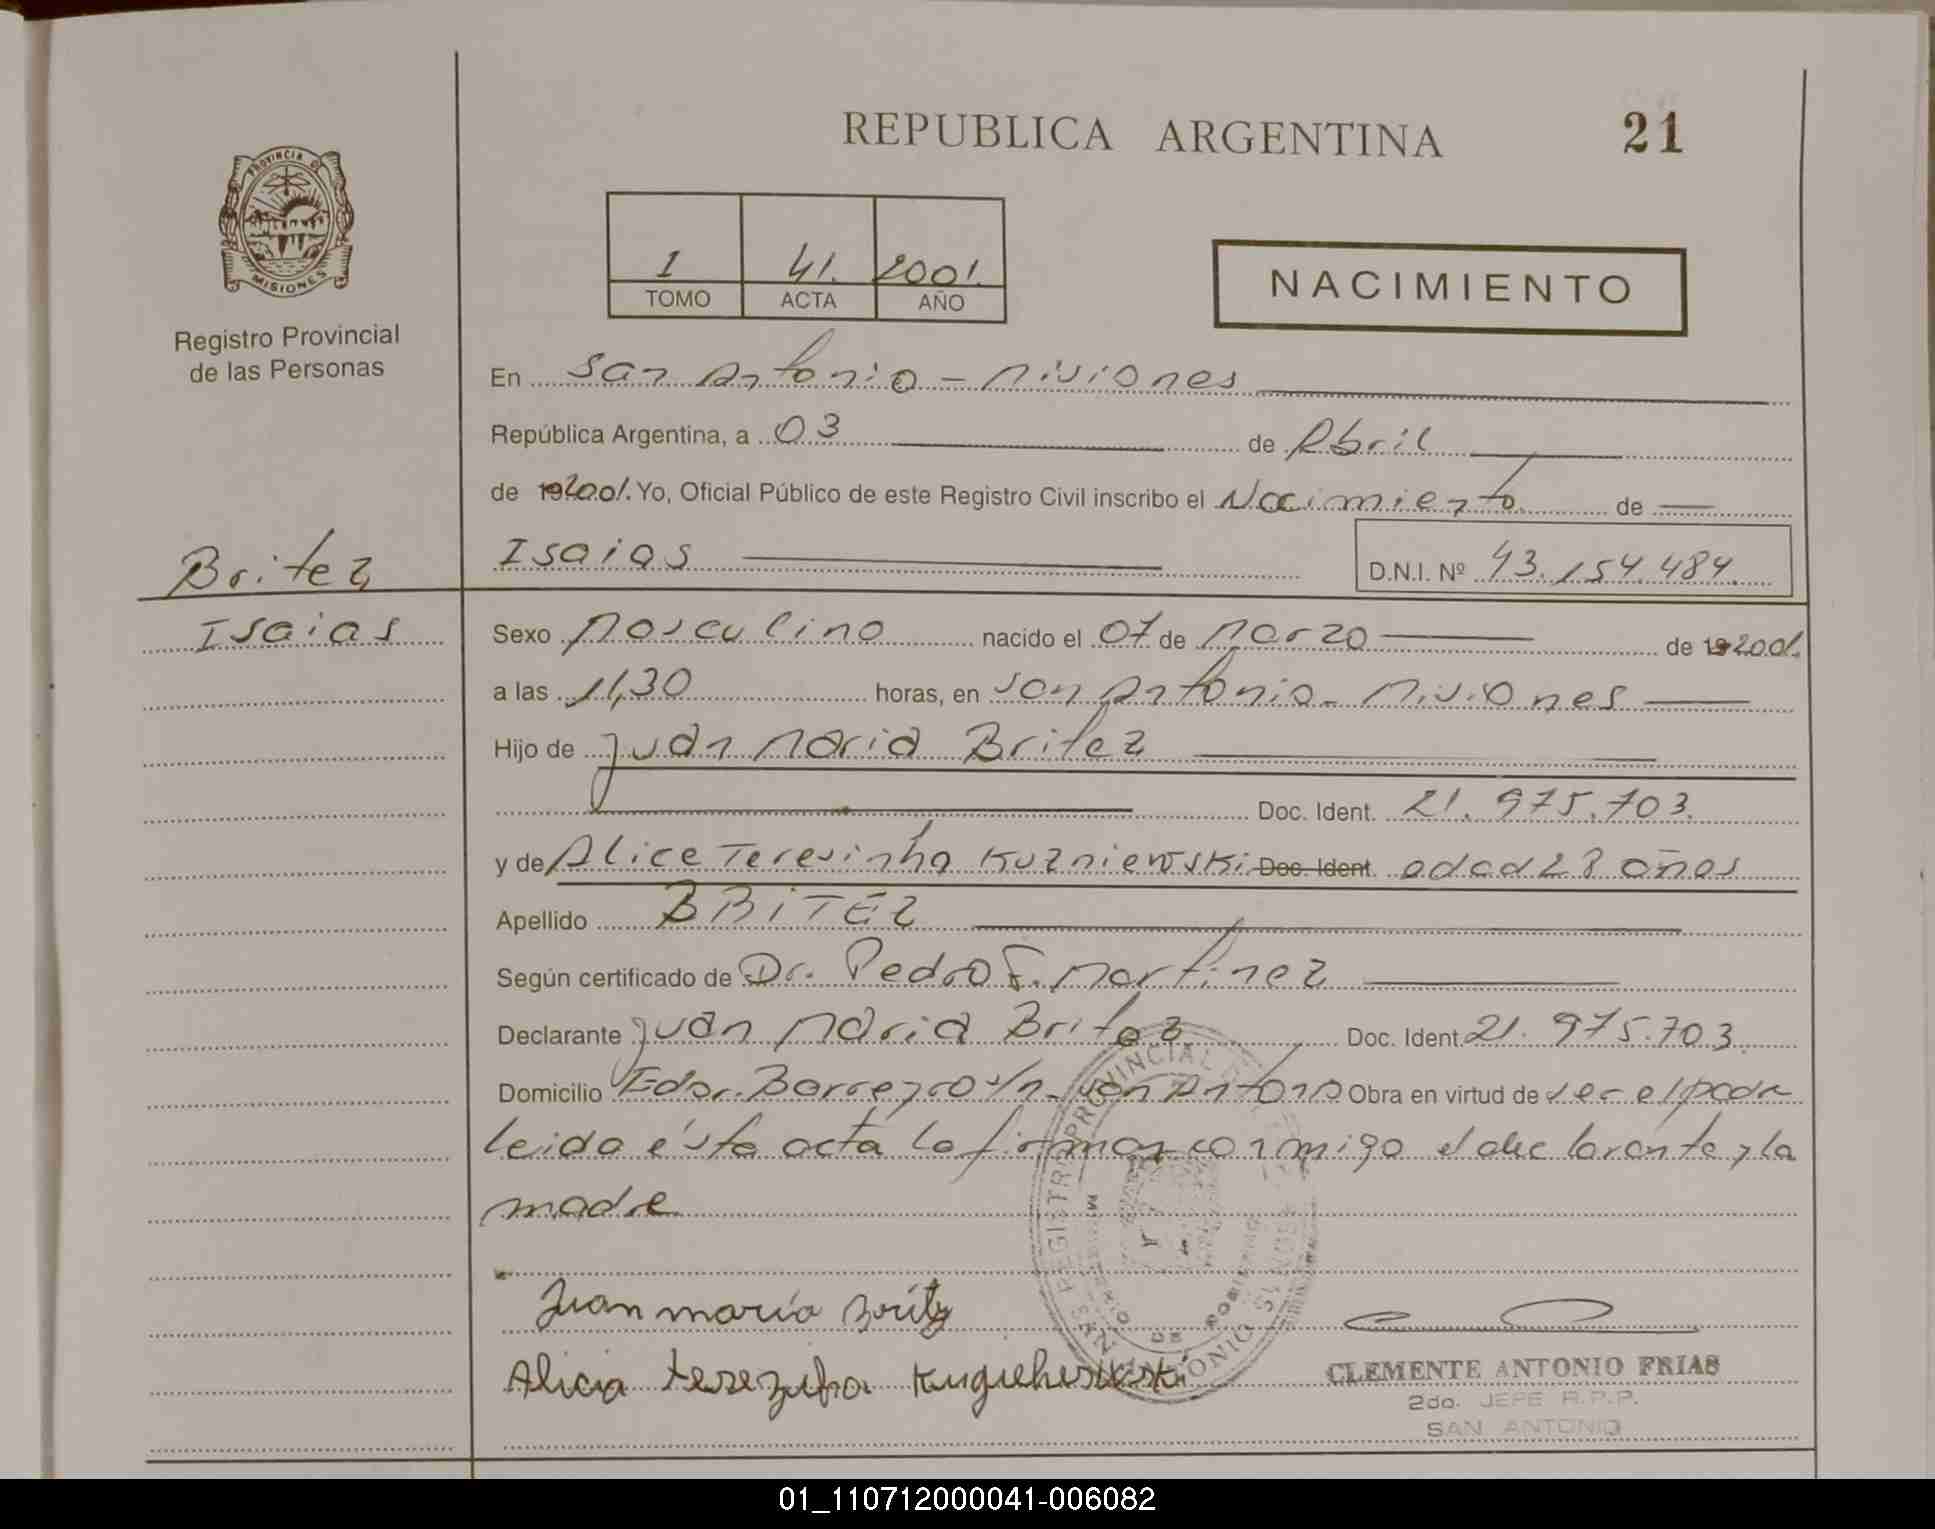 REPUBLICA ARGENTINA
21
PROVINCIA D
MISIONES
Registro Provincial
de las Personas
1 41. 2001.
TOMO ACTA AÑO
NACIMIENTO
En San Antonio - Misiones
República Argentina, a 03 de Abril
de 192001. Yo, Oficial Público de este Registro Civil inscribo el Nacimiento de
Britez
Isaias
Isaias D.N.I. Nº 43.154.484.
Sexo Masculino nacido el 07 de Marzo de 192001.
a las 11,30 horas, en San Antonio - Misiones
Hijo de Juan Maria Britez
Doc. Ident. 21.975.703.
y de Alice Teresinha Kuzniewski Doc. Ident. edad 28 años
Apellido BRITEZ
Según certificado de Dr. Pedro F. Martinez
Declarante Juan Maria Britez Doc. Ident. 21.975.703.
Domicilio Edor. Barreyro s/n - San Antonio Obra en virtud de ser el padre
leida ésta acta la firman conmigo el declarante y la
madre
REGISTRO PROVINCIAL
MINISTERIO DE GOBIERNO
SAN ANTONIO MISIONES
Juan maría Britez
Alicia terezinha
CLEMENTE ANTONIO FRIAS
2do. JEFE R.P.P.
SAN ANTONIO
01_110712000041-006082